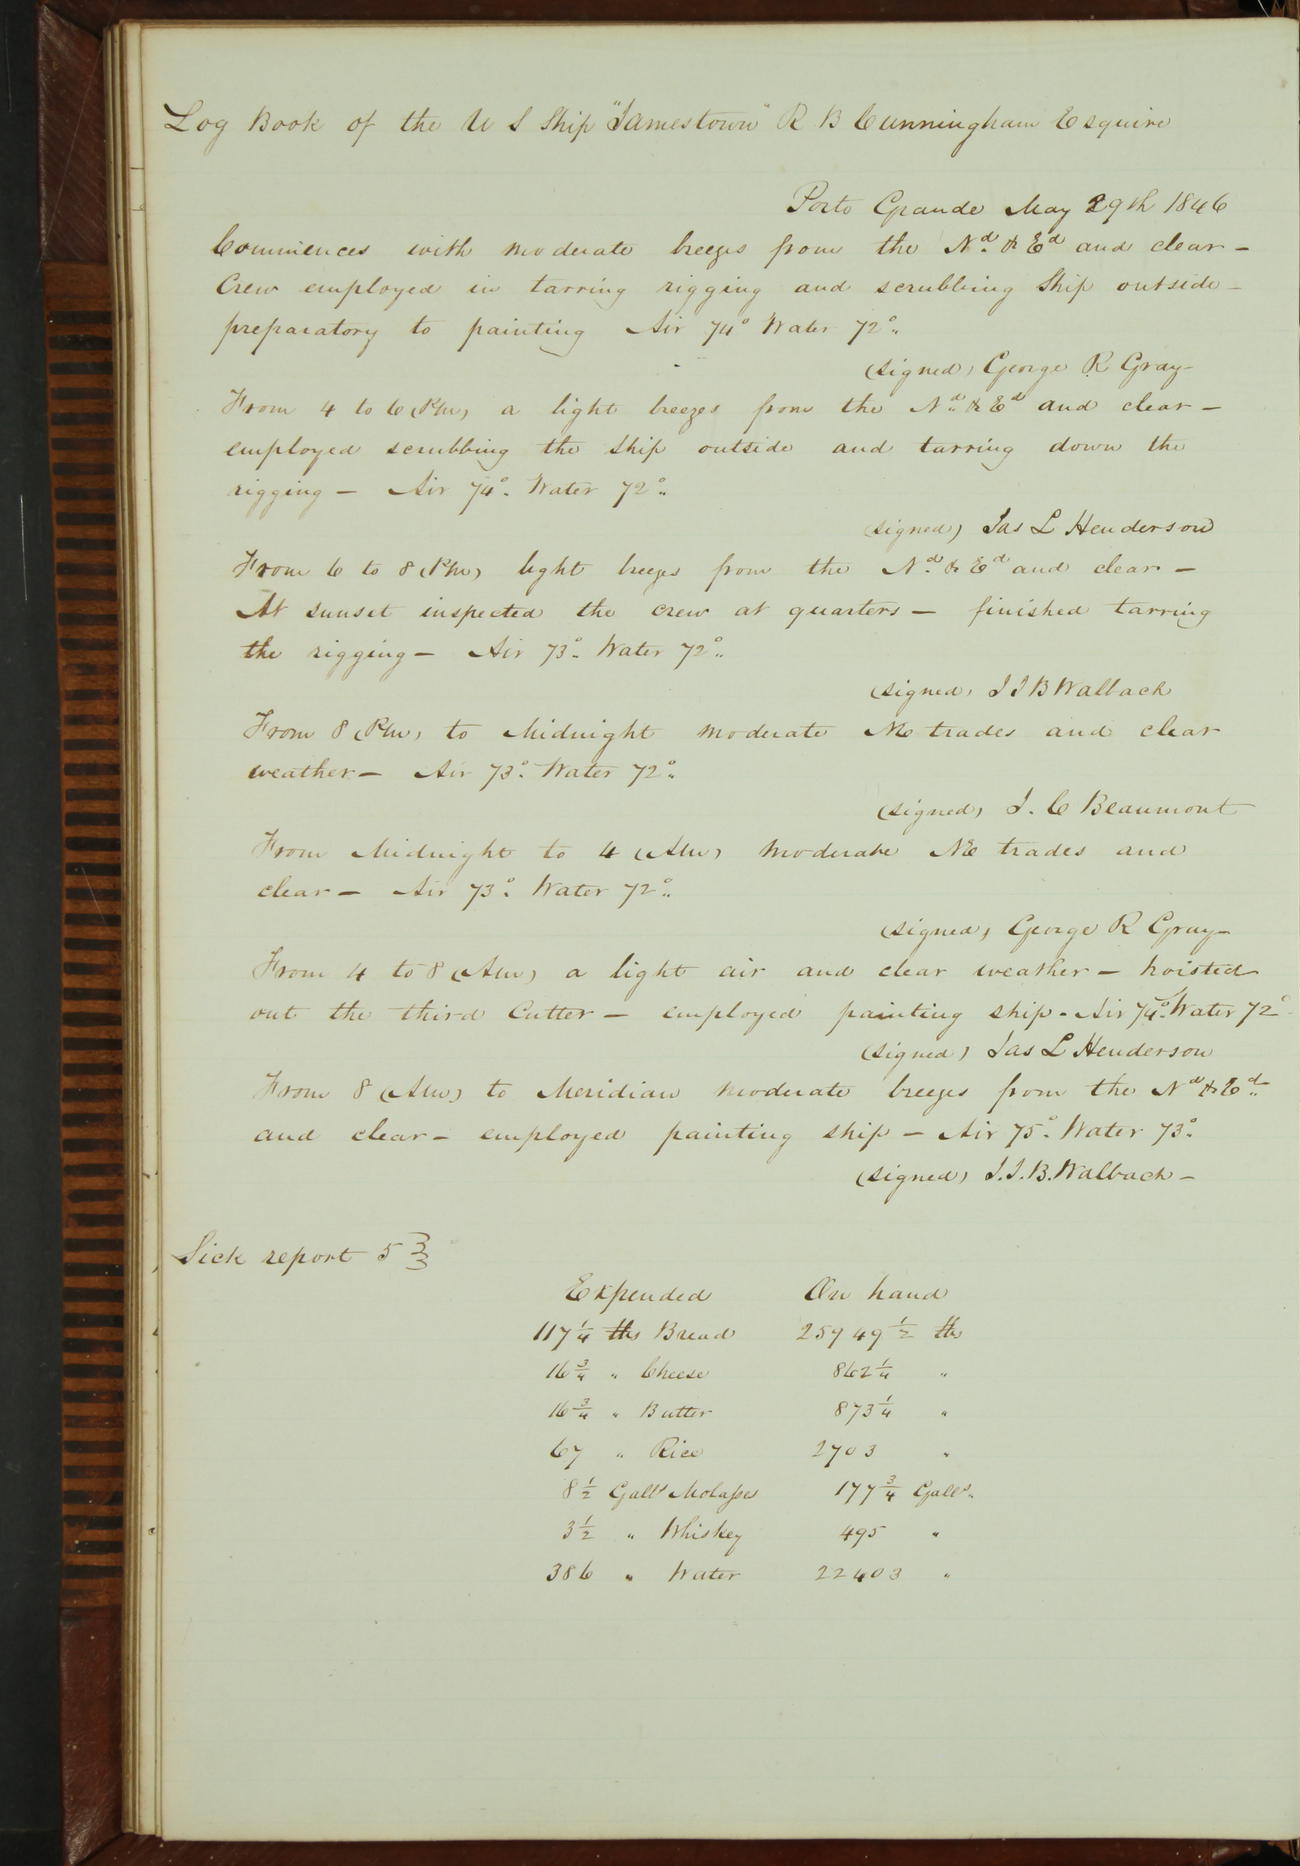 Log Book of the U S Ship "Jamestown" R B Cunningham Esquire
Porto Grande May 29th 1846
Commences with moderate breezes from the Nd & Ed and clear –
Crew employed in tarring rigging and scrubbing Ship outside –
preparatory to painting Air 74° Water 72°
(signed) George R Gray –
From 4 to 6 (Pm) a light breezes from the Nd & Ed and clear –
employed scrubbing the ship outside and tarring down the
rigging – Air 74°. Water 72°
(signed) Jas L Henderson
From 6 to 8 (Pm) light breezes from the Nd & Ed and clear –
At sunset inspected the crew at quarters – finished tarring
the rigging – Air 73°. Water 72°
(signed) J J B Walbach
From 8 (Pm) to Midnight moderate NE trades and clear
weather – Air 73°. Water 72°
(signed) J. C Beaumont
From Midnight to 4 (Am) moderate NE trades and
clear – Air 73°. Water 72°
(signed) George R Gray –
From 4 to 8 (Am) a light air and clear weather – hoisted
out the third Cutter – employed painting ship – Air 74°. Water 72°
(signed) Jas L Henderson
From 8 (Am) to Meridian moderate breezes from the Nd & Ed
and clear – employed painting ship – Air 75°. Water 73°.
(signed) J. J. B. Walbach –
Sick report 5 }
Expended On hand
117 1/4 lbs Bread 25949 1/2 lbs
16 3/4 " Cheese 862 1/4 "
16 3/4 " Butter 873 1/4 "
67 " Rice 2703 "
8 1/2 Galls Molasses 177 3/4 Galls.
3 1/2 " Whiskey 495 "
386 " Water 22403 "